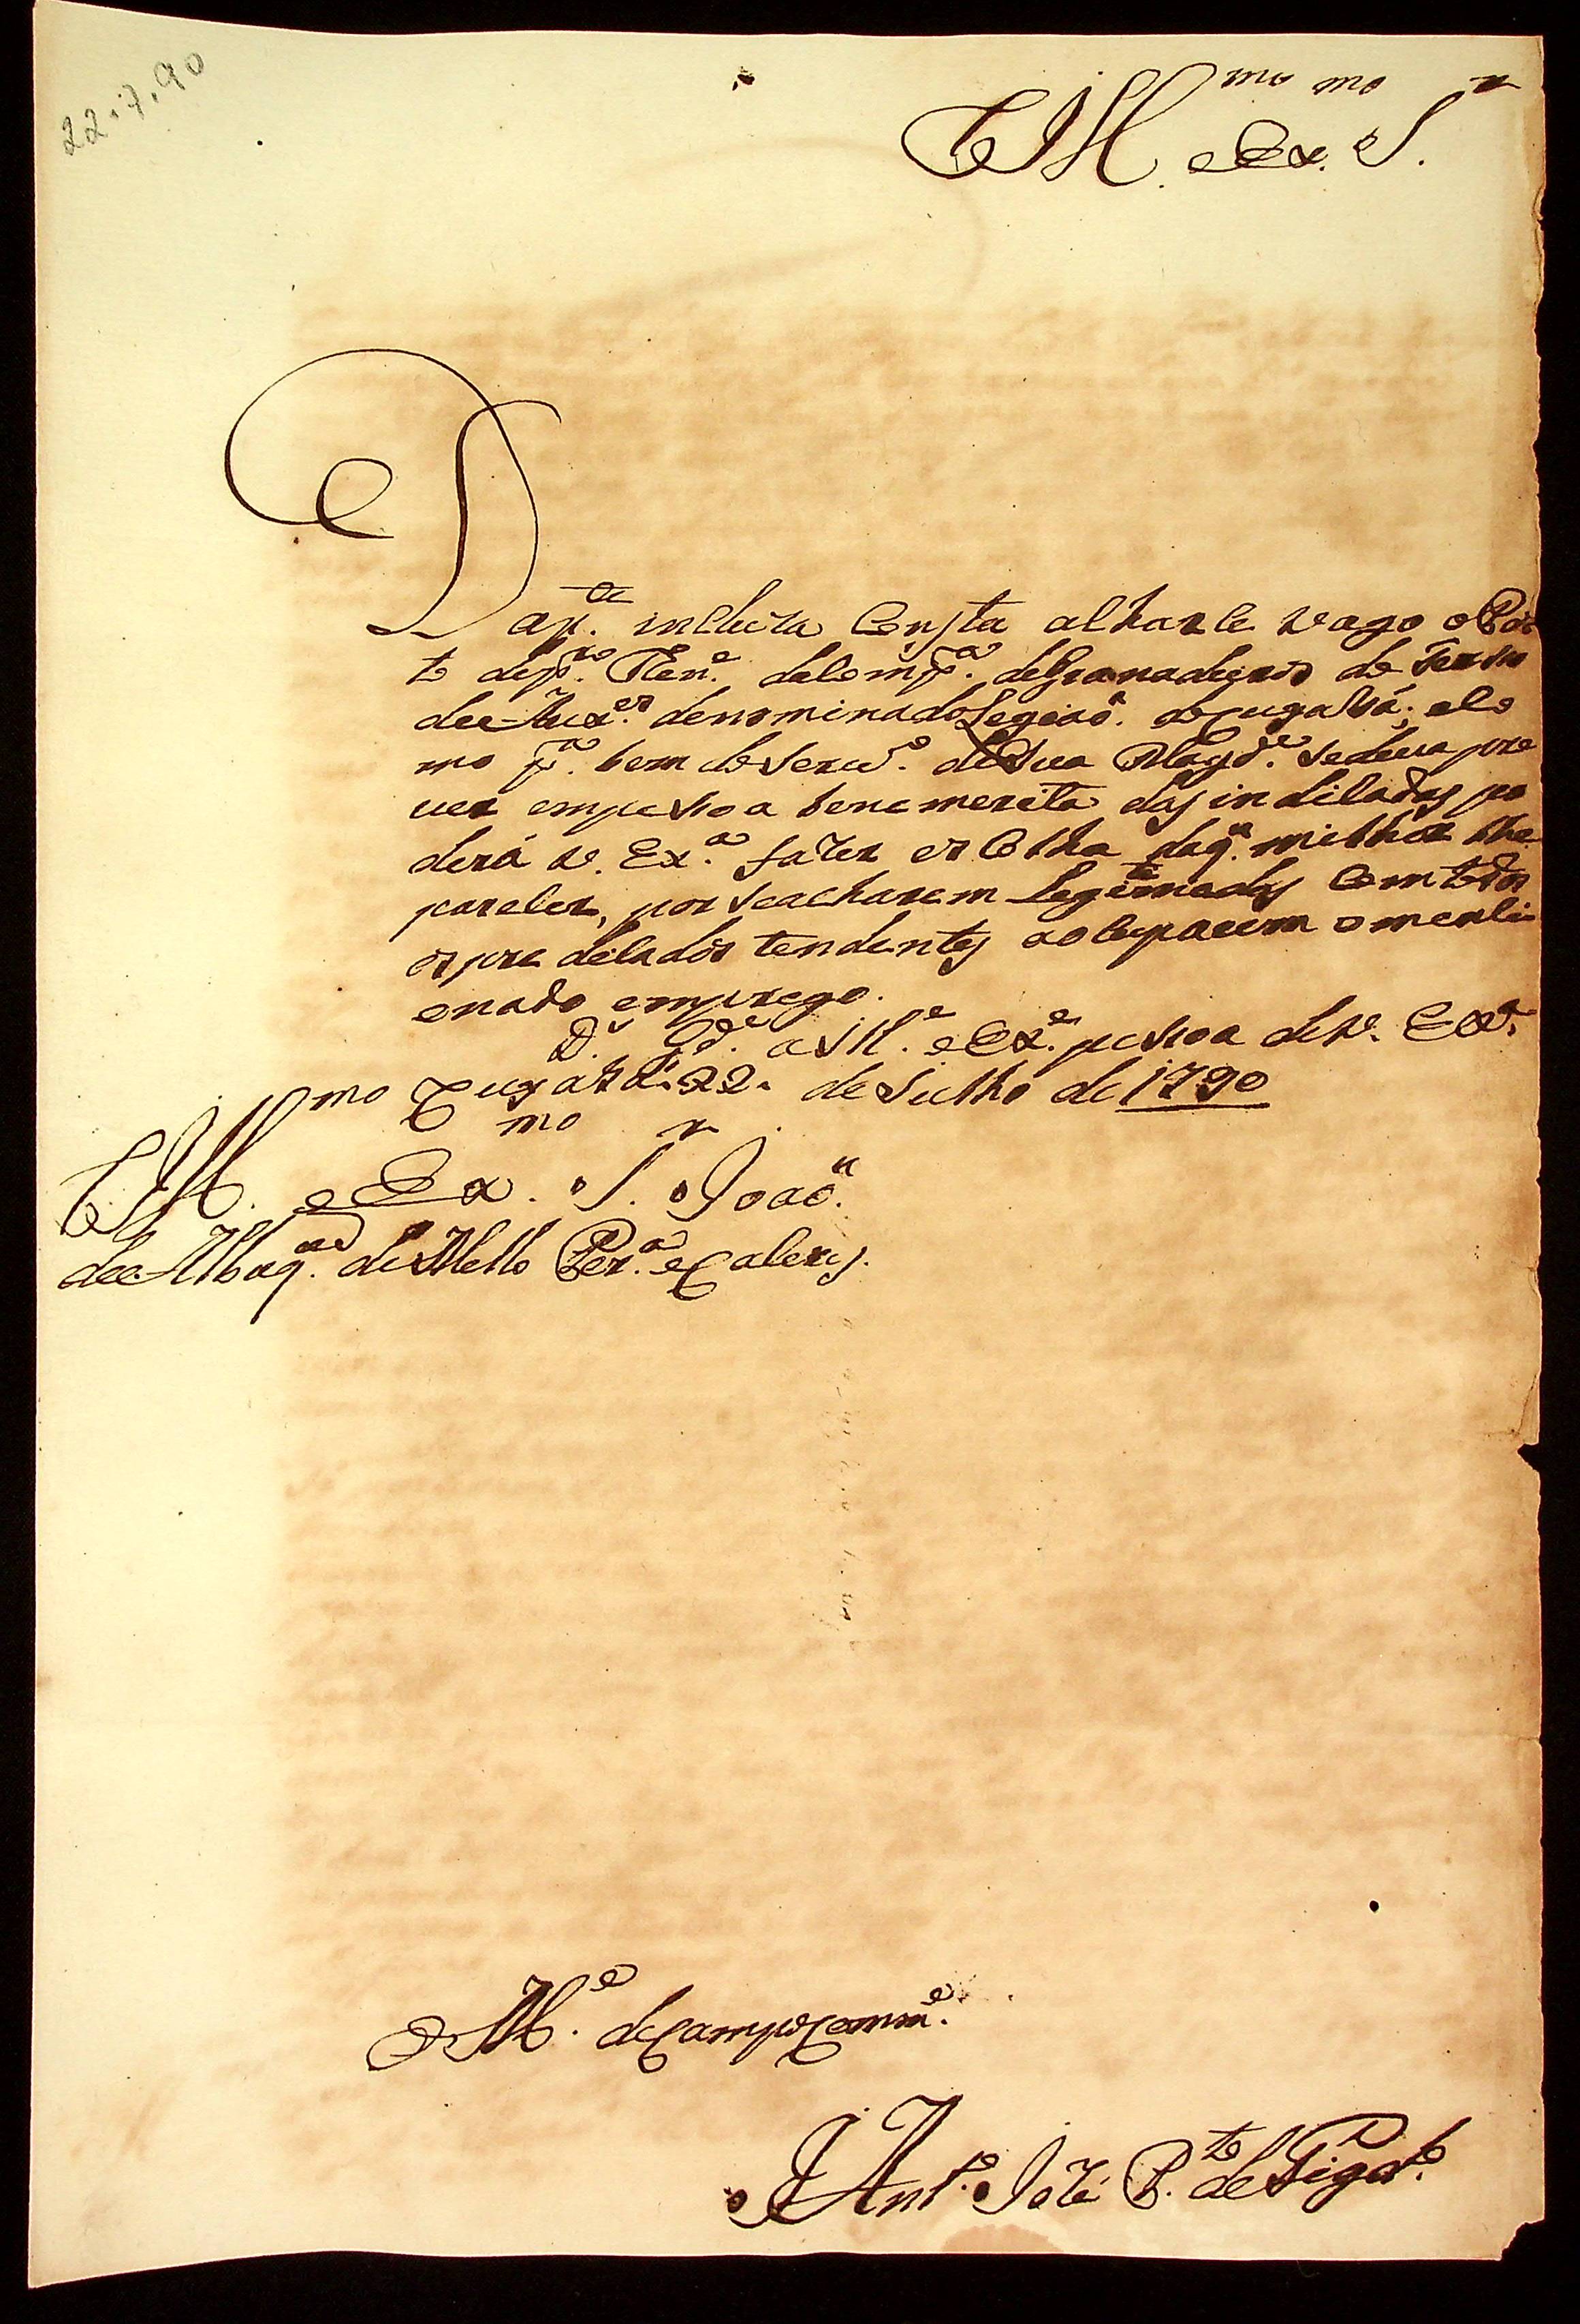 22.7.90
Ill.mo e Ex.mo S.r
Da p.te incluza Consta acharce vago o Pos
to de pr.o Ten.e da Comp.a de Granadeiros do Terso
de Aux.es denominado Legiaõ de Cuyabá; e Co
mo p.a bem do Serv.o de Sua Mag.de se deva pro
ver em pessoa benemerita das indicadas po
derá V. Ex.a fazer escolha da q. milhor lhe
parecer, por se acharem Legitimadas Com todos
os predicados tendentes a ocuparem o menci
onado emprego.
D.s G.de a Ill.e e Ex.e pessoa de V. Ex.a
Cuyabá 22 de Julho de 1790
Ill.mo e Ex.mo S.r Joaõ
de Albuq.e de Mello Per.a e Caceres.
O M.e de Campo Comm.e
Ant.o Jozé P.to de Figd.o